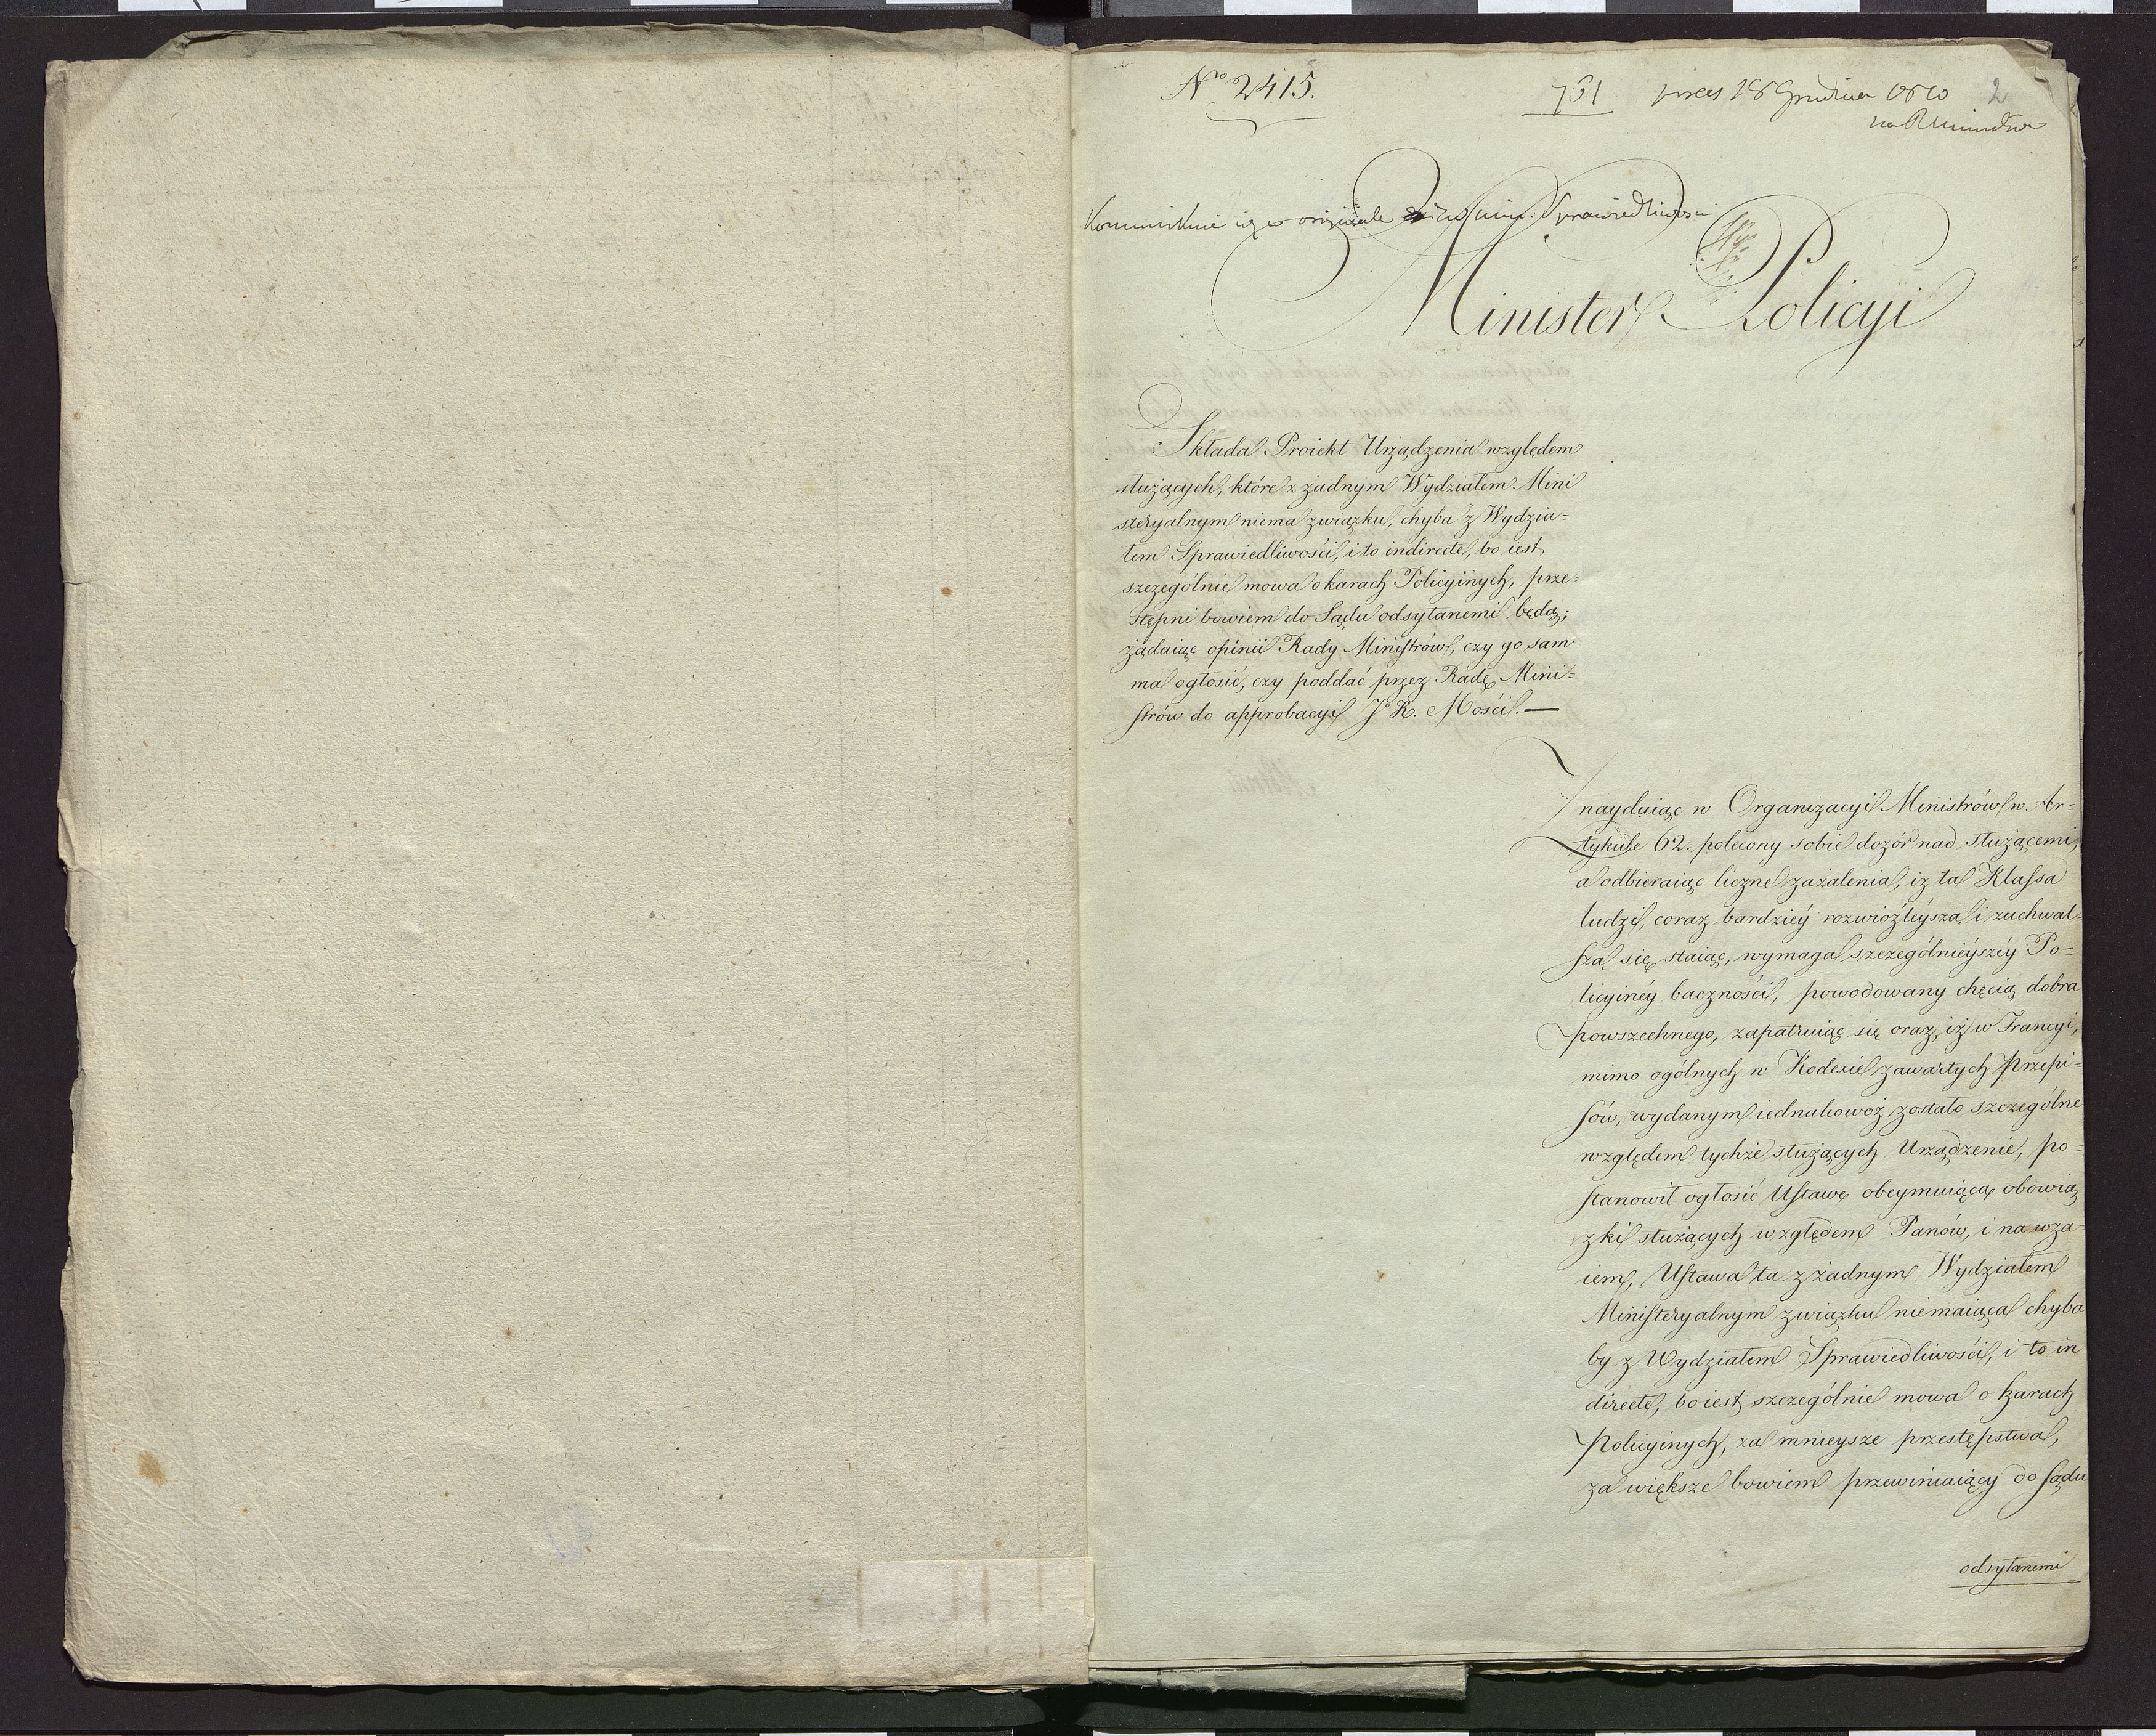 Nro 2415.
751 pres 18 Grudnia 1810 2
Kommunikuie się w originale Sprawiedliwości
Minister Policyi
Składa Proiekt Urządzenia względem
służących, które z żadnym Wydziałem Mini
steryalnym niema związku, chyba z Wydzia=
łem Sprawiedliwości, i to indirecte, bo iest
szczególnie mowa o karach Policyinych, prze=
stępni bowiem do Sądu odsyłanemi będą;
żądaiąc opinii Rady Ministrów, czy go sam
ma ogłosić, czy poddać przez Radę Mini=
strów do approbacyi J. K. Mości.—
Znayduiąc w Organizacyi Ministrów w Ar=
tykule 62. polecony sobie dozór nad służącemi,
a odbieraiąc liczne zażalenia, iż ta Klassa
ludzi, coraz bardziéy rozwiąźléysza i zuchwal
sza się staiąc, wymaga szczególniéyszéy Po=
licyinéy baczności, powodowany chęcią dobra
powszechnego, zapatruiąc się oraz, iż w Francyi,
mimo ogólnych w Kodexie zawartych Przepi=
sów, wydanym iednakowoż zostało szczególne
względem tychże służących Urządzenie, po=
stanowił ogłosić Ustawę obeymuiącą obowią
zki służących względem Panów, i na wza=
iem, Ustawa ta z żadnym Wydziałem
Ministeryalnym związku niemaiąca chyba
by z Wydziałem Sprawiedliwości, i to in
directe, bo iest szczególnie mowa o karach
Policyinych, za mnieysze przestępstwa,
za większe bowiem przewiniaiący do Sądu
odsyłanemi